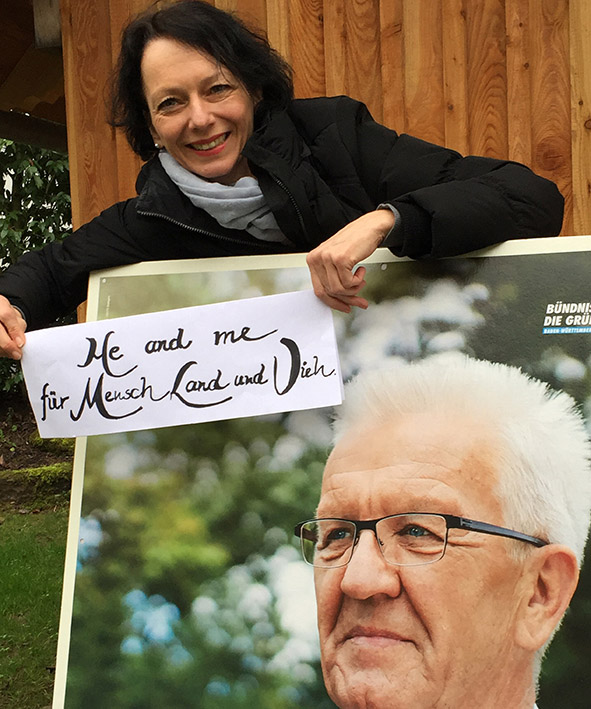 He and me
für Mensch Land und Vieh.
BÜNDNIS
DIE GRÜ
BADEN-WÜRTTEMBE